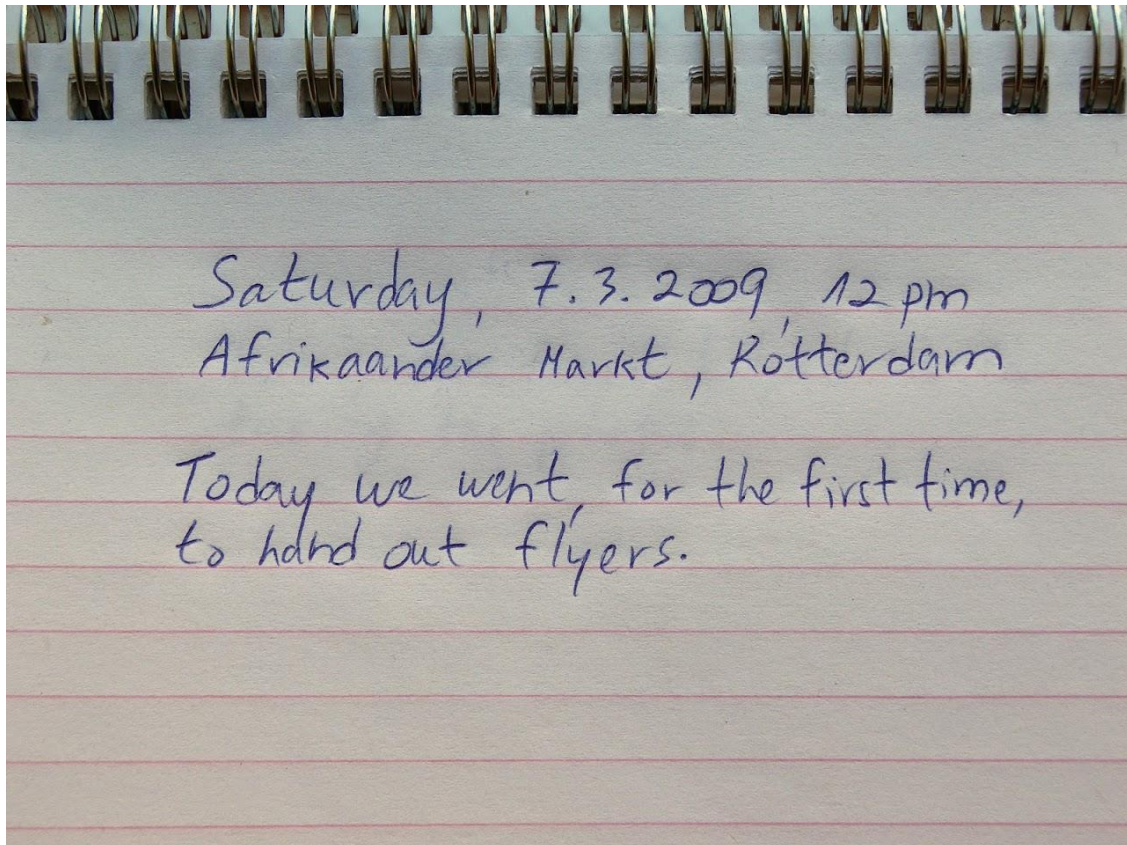 Saturday, 7.3.2009, 12 pm
Afrikaander Markt, Rotterdam
Today we went, for the first time,
to hand out flyers.